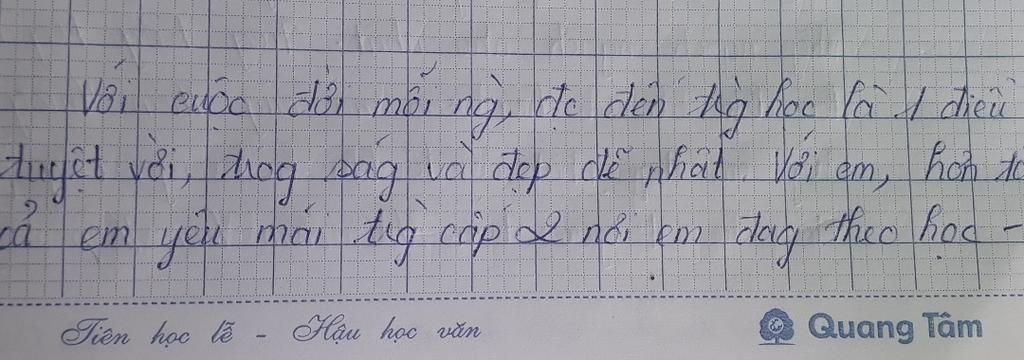 Với cuộc đời mỗi ng`, đc đến tg` học là 1 điều
tuyệt vời, trog ság và đẹp đẽ nhất. Với em, hơn
cả em yêu mái tg` cấp 2 nơi em đag theo học -
Tiên học lễ - Hậu học văn
Quang Tâm